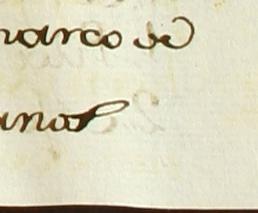 marco de
anos